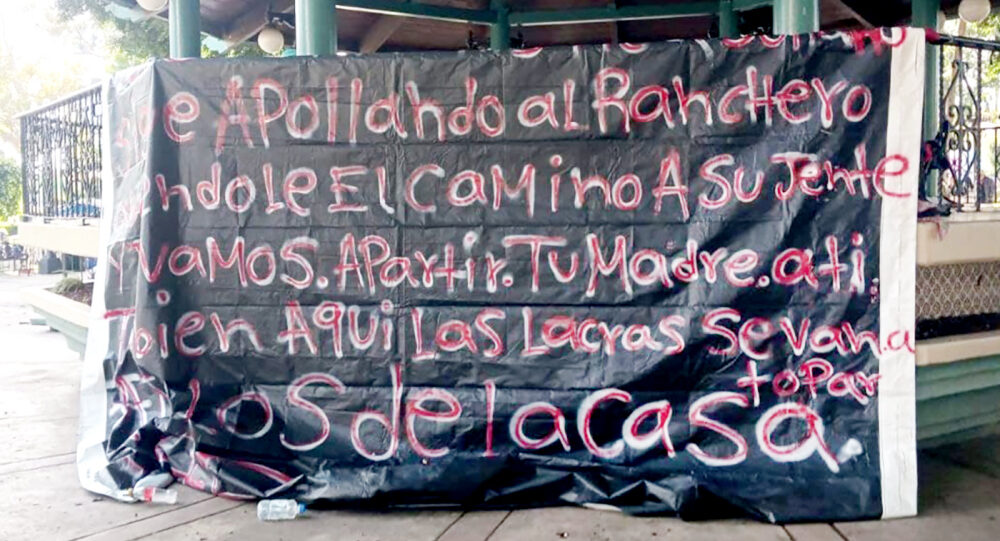 e APollando aL RanchEro
ndoLe EL CaMino A Su Jente
VaMOS. APartir. Tu Madre. ati.
Tbien Aqui Las Lacras Sevan a
toPar
LoS de la casa.